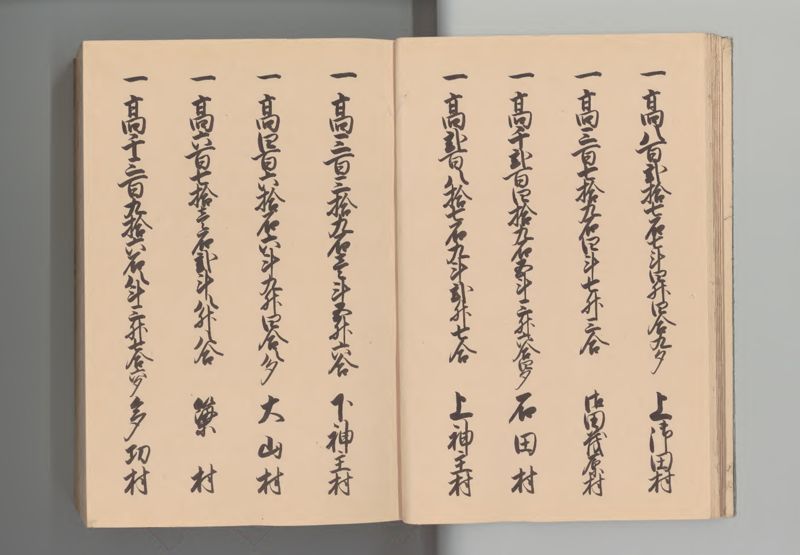 一 高八百弐拾七石七斗四升四合九夕 上蒲田村
一 高三百七拾九石四斗七升三合 御田長嶋村
一 高千弐百四拾九石五斗三升六合四夕 石田村
一 高弐百八拾七石九斗弐升七合 上神主村
一 高三百三拾九石壱斗五升六合 下神主村
一 高四百六拾石六斗九升四合八夕 大山村
一 高六百七拾壱石弐斗八升八合 簗村
一 高千三百九拾六石八斗三升七合六夕 多功村